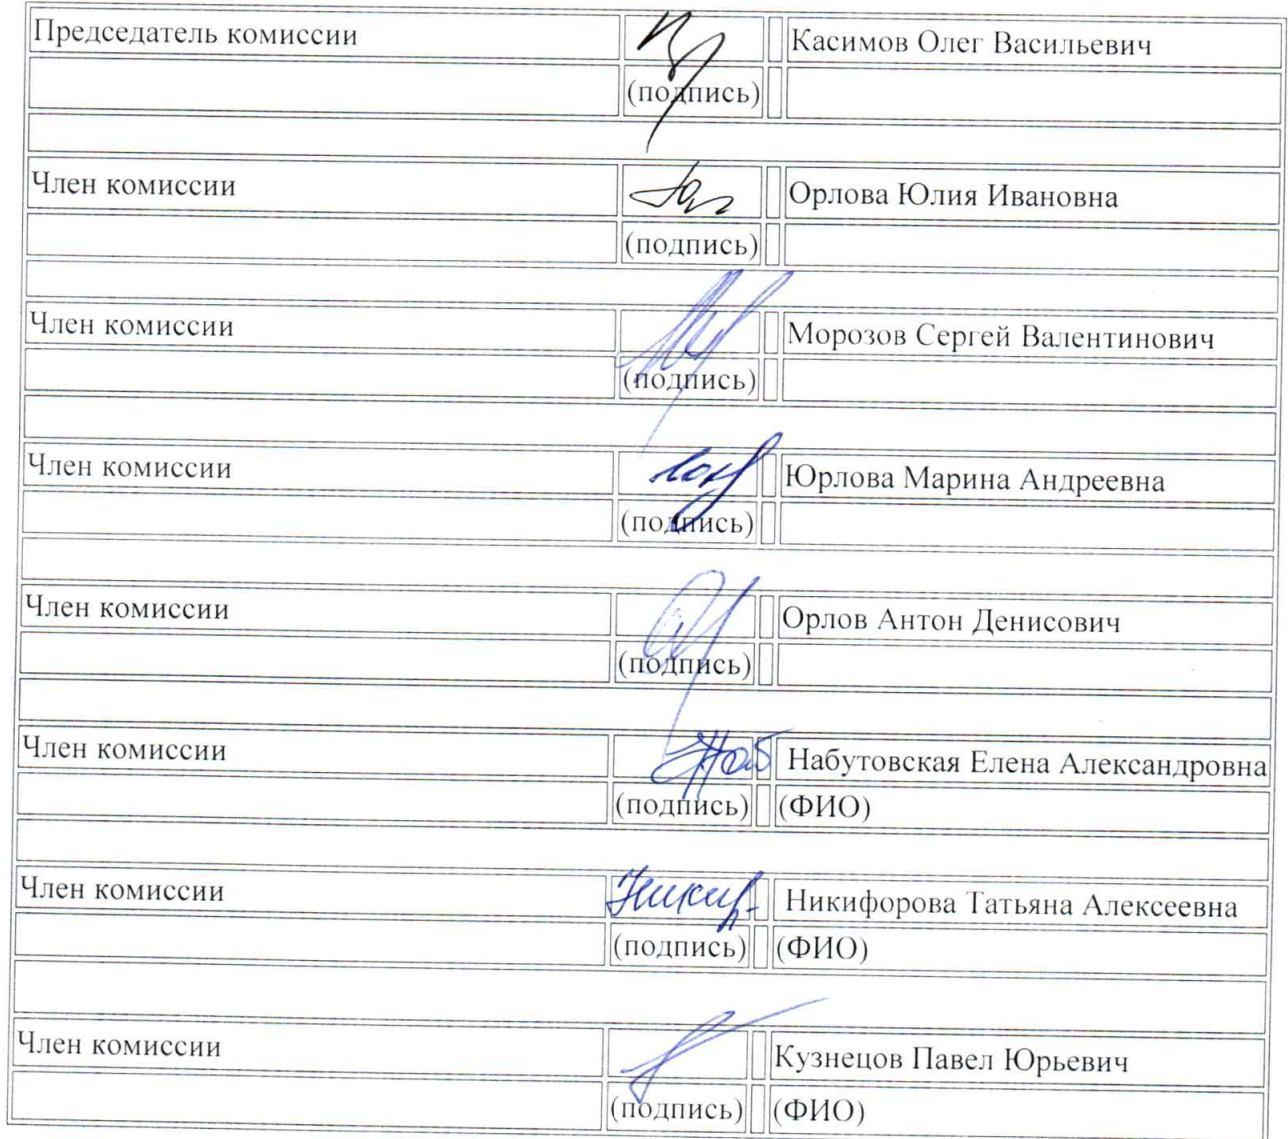 Председатель комиссии Касимов Олег Васильевич
(подпись)
Член комиссии Орлова Юлия Ивановна
(подпись)
Член комиссии Морозов Сергей Валентинович
(подпись)
Член комиссии Юрлова Марина Андреевна
(подпись)
Член комиссии Орлов Антон Денисович
(подпись)
Член комиссии Набутовская Елена Александровна
(подпись) (ФИО)
Член комиссии Никифорова Татьяна Алексеевна
(подпись) (ФИО)
Член комиссии Кузнецов Павел Юрьевич
(подпись) (ФИО)